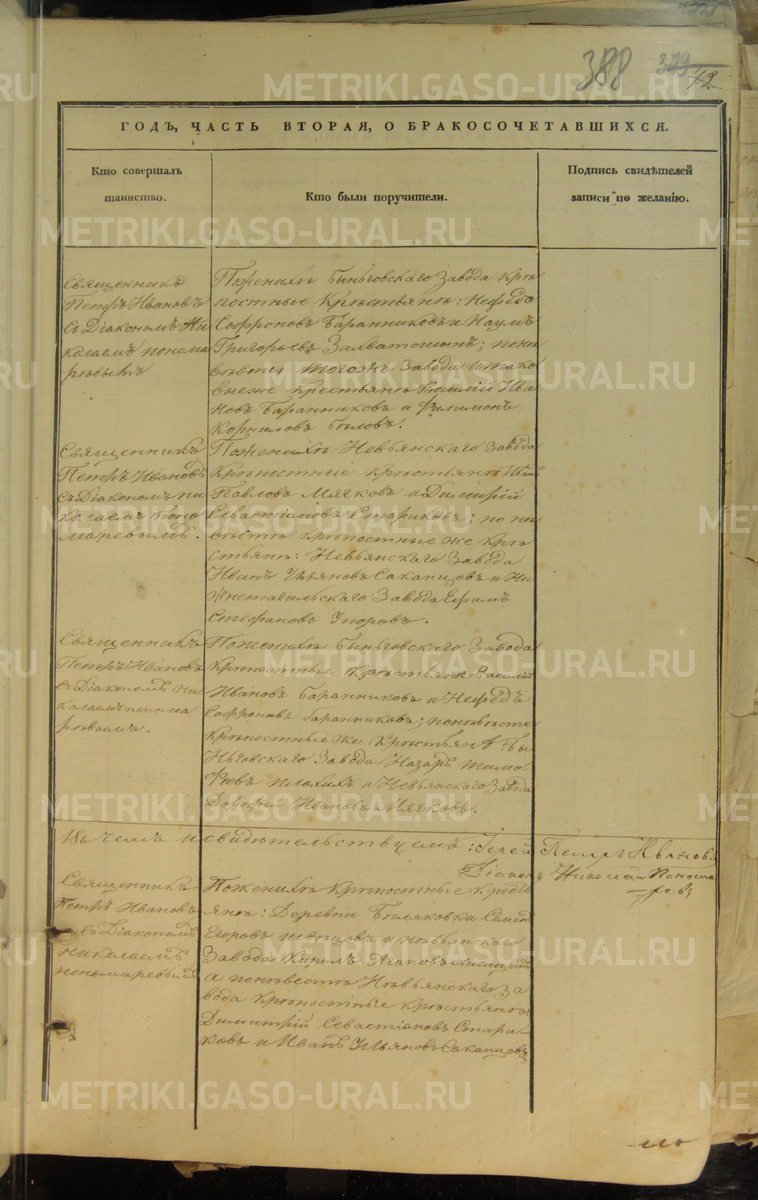 388 399 42
ГОДЪ, ЧАСТЬ ВТОРАЯ, О БРАКОСОЧЕТАВШИХСЯ.
Кто совершалъ
таинство.
Кто были поручители.
Подпись свидѣтелей
записи по желанію.
Священникъ
Петръ Ивановъ
съ Діакономъ Ни
колаемъ понома
ревымъ
Поженихѣ Быньговскаго Завода крѣ
постные Крѣстьянѣ: Нефедъ
Софроновъ Баранниковъ и Наумъ
Григорьевъ; поне
вѣстѣ тогожъ Завода и тако
выеже крестьянѣ Василій Ива
новъ Баранниковъ и Филимонъ
Корниловъ Бѣловъ.
Священникъ
Петръ Ивановъ
съ Діакономъ Ни
колаемъ Поно
маревымъ.
Поженихѣ Невьянскаго Завода
Крѣпостные крѣстьянѣ Иванъ
Павловъ Мягковъ и Димитрій
Севастіановъ Стариковъ; по не
вѣстѣ крѣпостные же Крѣ
стьянѣ: Невьянскаго Завода
Иванъ Ульяновъ Саканцовъ и Ни
жнетагильскаго Завода Ефимъ
Стефановъ Упоровъ.
Священникъ
Петръ Ивановъ
съ Діакономъ Ни
колаемъ понома
ревымъ.
Поженихѣ Быньговскаго Завода
Крѣпостные Крѣстьяне Василій
Ивановъ Баранниковъ и Нефедъ
Софроновъ Баранниковъ; поневѣсте
Крѣпостные же Крѣстьянѣ: Бы
ньговскаго Завода Назаръ Тимо
феевъ Плохихъ и Невьянскаго Завода
Дорофей Ивановъ Мягковъ.
Въ чемъ и свидѣтельствуемъ: Іерей Петръ Ивановъ
Діаконъ Николай Понома
ревъ
Священникъ
Петръ Ивановъ
съ Діакономъ
Николаемъ
пономаревымъ
Поженихѣ Крѣпостные крѣсть
янѣ: Деревни Бѣляковки Семенъ
Егоровъ Швецовъ и Невьянскаго
Завода Кирилъ Агаповъ
а поневестѣ Невьянскаго За
вода крѣпостные крѣстьянѣ
Димитрій Севастіановъ Стари
ковъ и Иванъ Ульяновъ Саканцовъ
METRIKI.GASO-URAL.RU